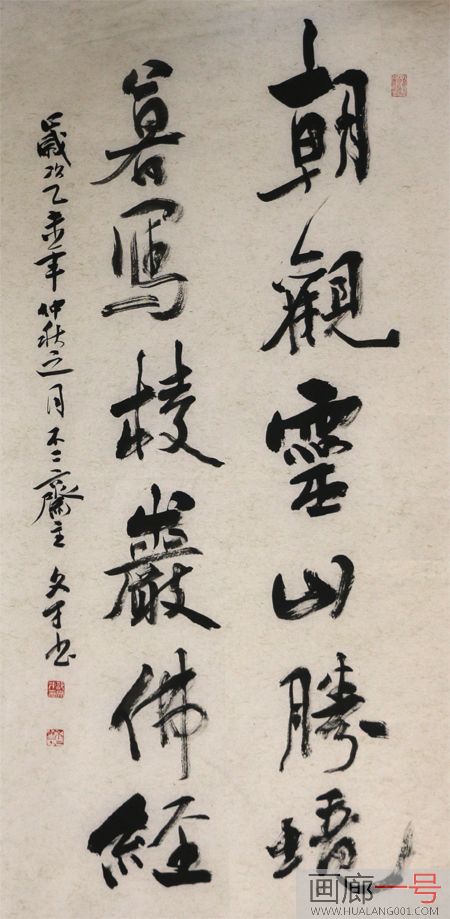 朝觀靈山勝境
暮寫棱巖佛経
歲次乙未年仲秋之月不二齋主文才书
画廊一号
WWW.HUALANG001.COM